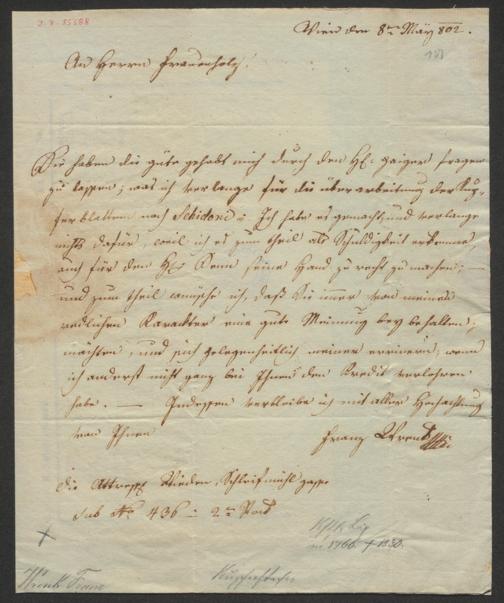 Wien den 8ten März 802.
An Herrn Frauenholz.
Sie haben die güte gehabt mich durch den Hr: gaiger fragen
zu lassen; was ich verlange für die überarbeitung der Kup-
ferblatten nach Schidoni: Ich habe es gemacht, und verlange
nichts dafür, weil ich es zum theil als Schuldigkeit erkenne,
auch für den Hr: seine Hand zu recht zu machen; —
und zum theil wünsche ich, daß Sie immer von meinem
redlichen Karackter eine gute Meinung bey behalten
möchten, und sich gelegenheitlich meiner erinern, wenn
ich anderst nicht ganz bei Ihnen den Kredit verlohren
habe. — Indessen verbleibe ich mit aller Hochachtung
von Ihnen
Franz Wrenk
die Attresse Wieden, Schleifmühl gasse
Sub No 436: 2ten Stock
1766 † 1830.
Wrenk Franz
Kupferstecher